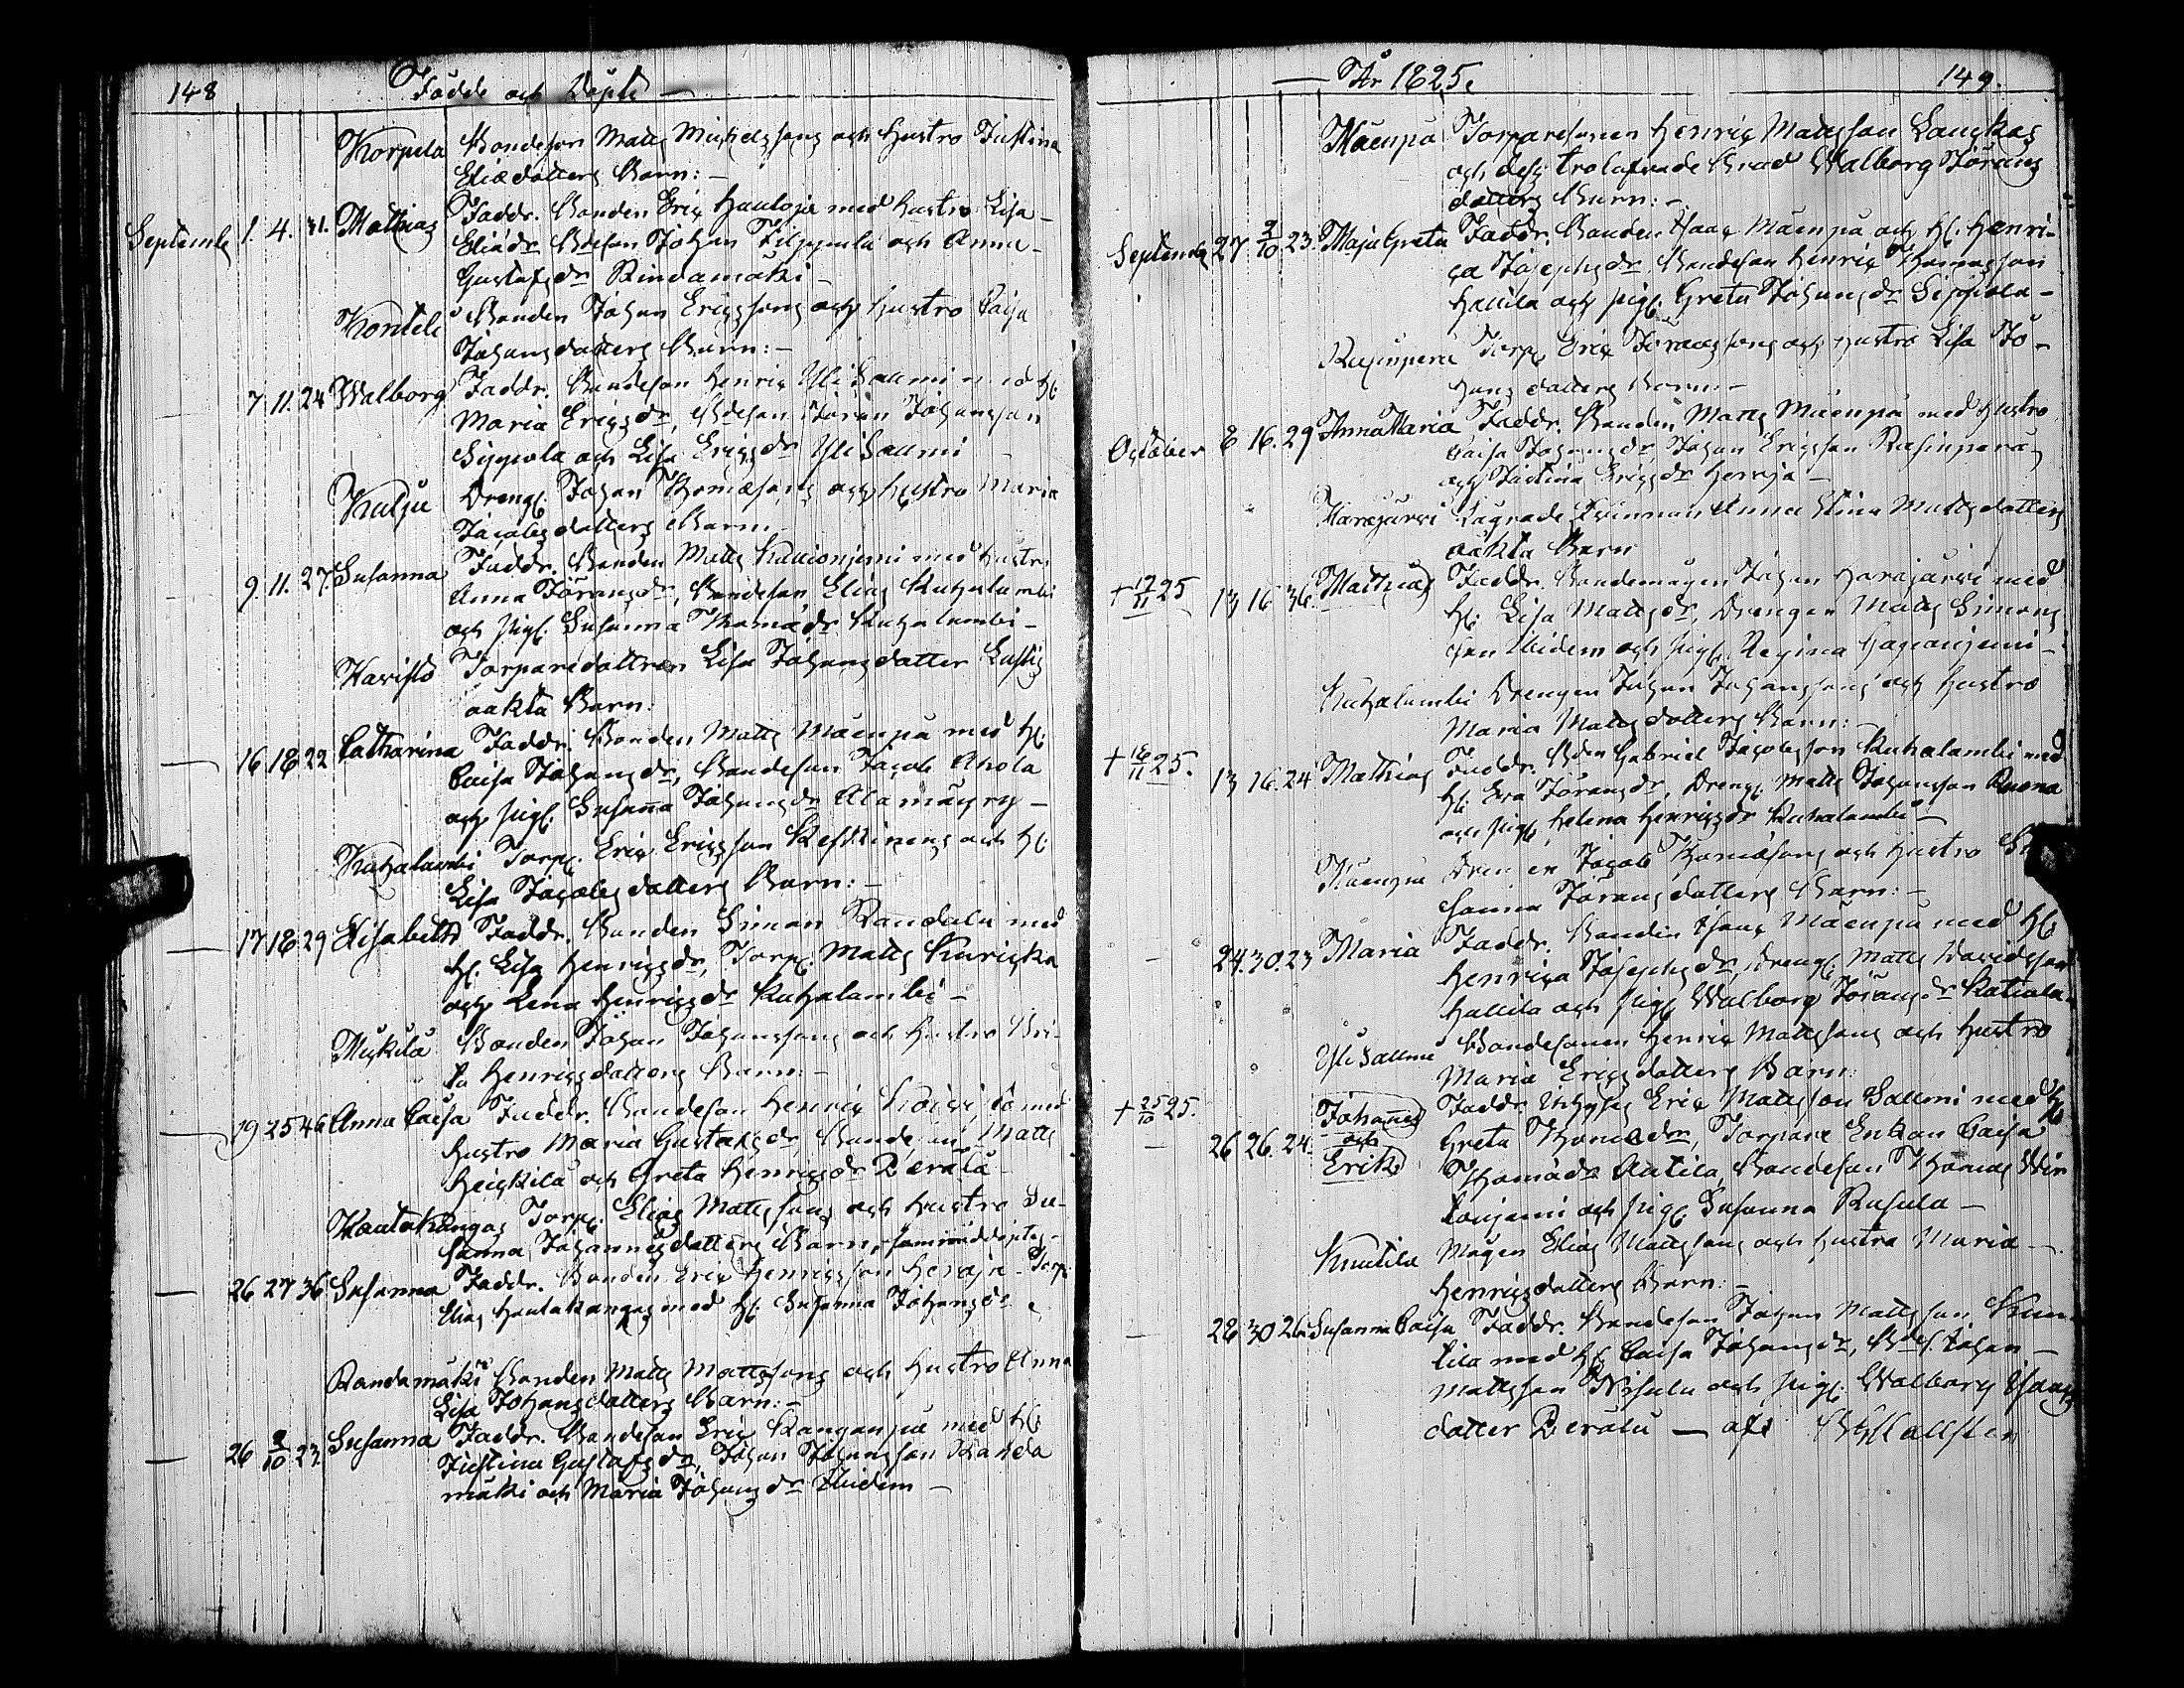 148
Födde och Döpte —
Korpela Bondeson Matts Michelssons och Hustro Justina
Eliædotters Barn: —
Septembr 1. 4. 31. Mathias Faddr. Bonden Eric Hauloja med Hustro Lisa
Eliædr Bdeson Johan Filppula och Anna
Gustafsdr Rindamäki —
Konteli Bonden Johan Ericssons och Hustro Caisa
Johansdotters Barn: —
7 11. 24 Walborg Faddr. Bondeson Henric Yli Saumi med H:
Maria Ericsdr, Bdeson Jöran Johansson
Sippola och Lisa Ericsdr Yli Saumi
Kulju Dreng. Johan Thomæsons och Hustro Maria
Jacobsdotters Barn.
9. 11. 27. Susanna Faddr. Bonden Matts med Hustro
Anna Jöransdr, Bondeson Elias Kuhalambi
och Pig. Susanna Thomædr Kuhalambi —
Karisto Torparedottren Lisa Johansdotter Lustigs
oäkta Barn:
16 18 22 Catharina Faddr. Bonden Matts Mäenpä med H:
Caisa Johansdr, Bondeson Jacob Ahola
och Pig. Susanna Johansdr Alamäyry —
Kuhalambi Torp. Eric Ericsson Keskinens och H:
Lisa Jacobsdotters Barn: —
17 18 29 Elisabeth Faddr. Bonden Simon Randala med
H: Lisa Henricsdr, Torp. Matts Kuricka
och Lena Henricsdr Kuhalambi —
Mickilä Bonden Johan Johanssons och Hustro Bri-
ta Henricsdotters Barn: —
19 25 46 Anna Caisa Faddr. Bondeson Henric med
Hustro Maria Gustafsdr, Bondeson Matts
Heickilä och Greta Henricsdr Perälä
Hautakangas Torp. Elias Mattssons och Hustro Su-
sanna Johannisdotters Barn,
26 27 36 Susanna Faddr. Bonden Eric Henricsson Heroja - Torp.
Elias Hautakangas med H: Susanna Johansdr
Randamäki Bonden Matts Mattssons och Hustro Anna
Lisa Johansdotters Barn: —
26 2/10 23 Susanna Faddr. Bondeson Eric Kanganpä med H:
Justina Gustafsdr, Johan Johansson Randa
mäki och Maria Johansdr Flidem —
— År 1825.
149.
Mäenpä Torparesonen Henric Mattsson Laukas
och dess trolofvade Brud Walborg Jörans
dotters Barn: —
Septembr 27 2/10 23. Maja Greta Faddr. Bonden Isac Mäenpä och H: Henri-
ca Josephsdr Bondeson Henric Thomasson
Hallila och Pig. Greta Johansdr Seppälä —
Rasinperä Torp. Eric Jöranssons och Hustro Lisa Jo-
hans dotters Barn: —
October 8 16. 29 Anna Maria Faddr. Bonden Matts Mäenpä med Hustro
Caisa Johansdr Johan Ericsson Rasinperä
och Justina Ericsdr Heroja —
Harajärvi Lägrade Qvinnan Anna Stina Mattsdotters
oäkta Barn
+ 17/11 25 13 16. 36. Mathias Faddr. Bondemågen Johan Harajärvi med
H: Lisa Mattsdr, Drengen Matts Simons
son Flidem och Pig. Regina Haapaniemi —
Kuhalambi Drengen Johan Johanssons och Hustro
Maria Mattsdotters Barn:
+ 18/11 25. 13 16. 24 Mathias Faddr. Bden Gabriel Jacobsson Kuhalambi med
H: Eva Jöransdr, Dreng. Matts Johansson Ruona
och Pig. Helena Henricsdr Kuhalambi —
Mäenpä Jacob Thomæsons och Hustro
sanna Jöransdotters Barn: —
24. 30. 23 Maria Faddr. Bonden Isac Mäenpä med H:
Henrica Josephsdr, Dreng. Matts Davidsson
Hallila och Pig. Walborg Jöransdr
Yli Sallme Bondesonen Henric Mattssons och Hustro
Maria Ericsdotters Barn:
+ 25/10 25. 26 26. 24. Johannes
och
Erik Faddr. Eric Mattsson Sallmi med H:
Greta Thomædr, Torpare Enkan Caisa
Thomædr Antila, Bondeson Thomas
och Pig. Susanna Rusula —
Knutila Mågen Elias Mattssons och Hustro Maria —
Henricsdotters Barn: —
28 30 26 Susanna Caisa Faddr. Bondeson Johan Mattsson Knu-
tila med H: Caisa Johansdr, Bdes. Johan —
Mattsson Nisula och Pig. Walborg Isaacs
dotter Perälä — af